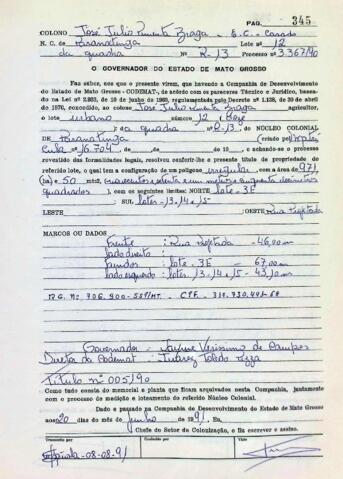 PAG. 345
COLONO José Julio Pimenta Braga - E.C. - Casado
N. C. de Paranatinga Lote nº 12
da quadra Nº R-13 Processo nº 3.367/90
O GOVERNADOR DO ESTADO DE MATO GROSSO
Faz saber, aos que o presente virem, que havendo a Companhia de Desenvolvimento
do Estado de Mato Grosso - CODEMAT-, de acordo com os pareceres Técnico e Jurídico, baseada
na Lei nº 2.933, de 19 de junho de 1969, regulamentada pelo Decreto nº 1.138, de 30 de abril
de 1970, concedido, ao colono José Julio Pimenta Braga agricultor,
o lote urbano número 12 / Doze
da quadra nº R-13. do NÚCLEO COLONIAL
de Paranatinga (criado pelo
nº 16.704 de e achando-se o processo
revestido das formalidades legais, resolveu conferir-lhe o presente título de propriedade do
referido lote, o qual tem a configuração de um polígono irregular com a área de 971
(ha) e 50 mts2,
quadrados ), com os seguintes limites: NORTE lote - 3E
SUL lotes - 13-14 e 15
LESTE OESTE Rua Projetada
MARCOS OU DADOS
Frente : Rua Projetada - 46,00 m
lado direito :
fundos : lote - 3E - 67,00 m
lado esquerdo : lotes 13-14 e 15 - 43,10 m
R.G. nº 706.900-SSP/MT. - CPF.
Governador - Jayme Verissimo de Campos
Diretor da Codemat -
Titulo nº 005/90
Como tudo consta do memorial e planta que ficam arquivados nesta Companhia, juntamente
com o processo de medição e loteamento do referido Núcleo Colonial.
Dado e passado na Companhia de Desenvolvimento do Estado de Mato Grosso
aos 20 dias do mês de junho de 1991. Eu
Chefe do Setor da Colonização, o fiz escrever e assino.
Visto
08-08-91